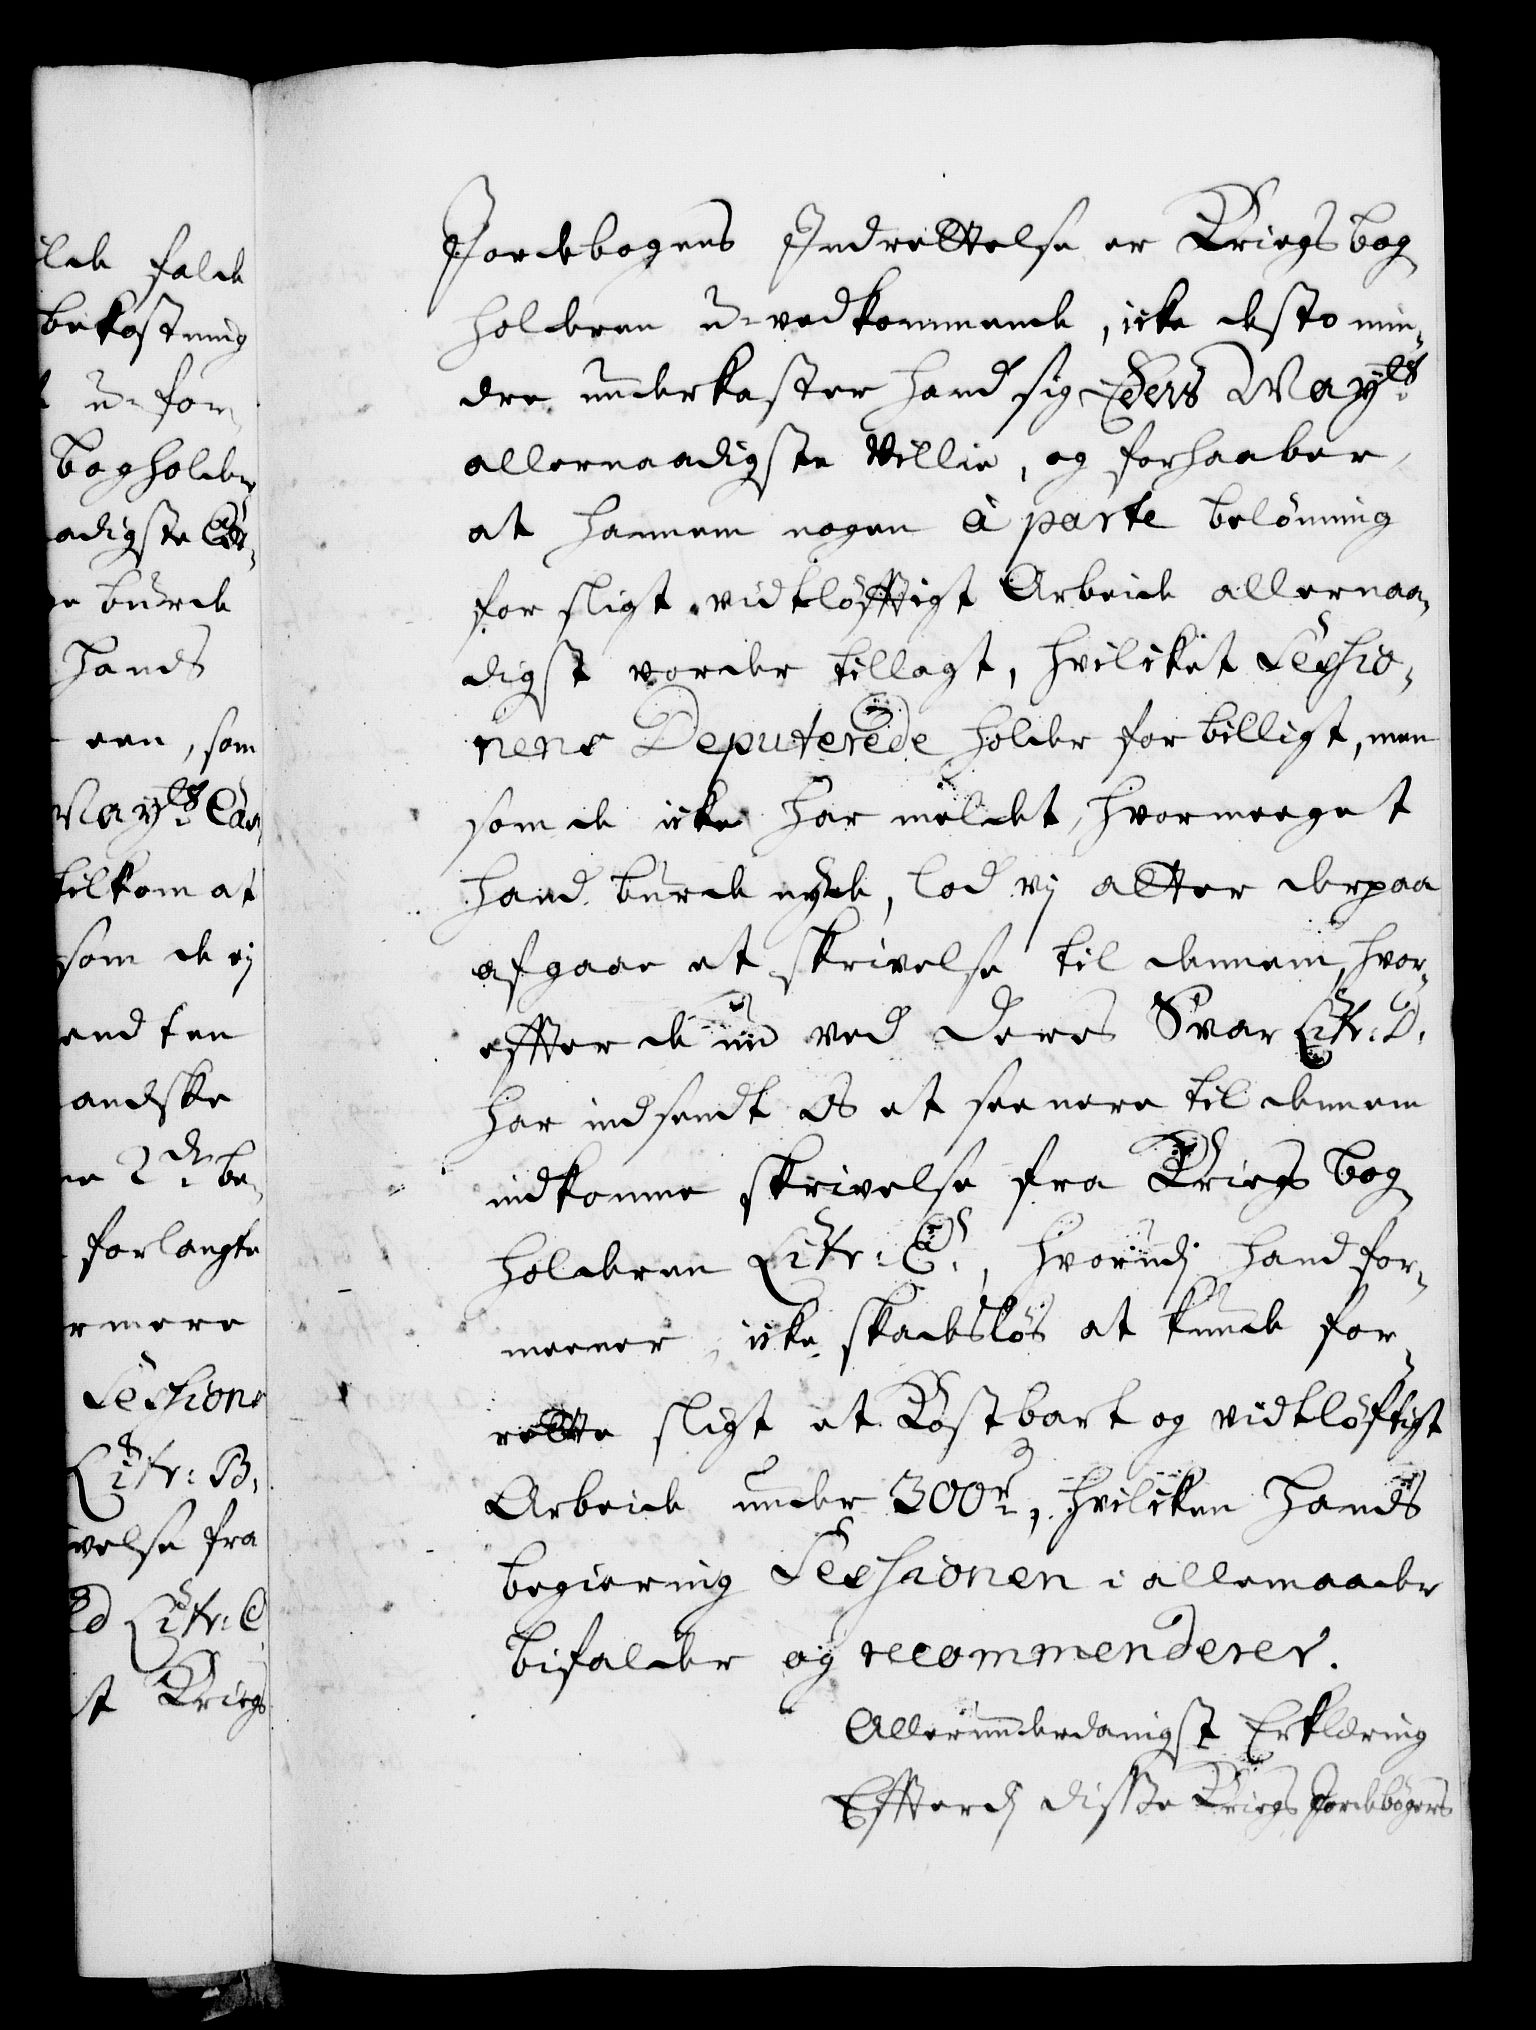 ilde falde
bekostning
t u-for¬
bogholder
adigste Er¬
e burde
hands
een, som
May:ts Can¬
tilkom at
som de ej
endten
andske
ne 2:de be¬
forlangte
rmere
Sessions
Litr: B.
velse fra
Ed Litr: C.
st Kriegs
Jordebogens Indrettelse er Kriegsbog
holderen u-vedkommende, icke desto min¬
dre underkaster hand sig Eders May:ts
allernaadigste Villie, og forhaaber,
at hannem nogen à parte belönning
for sligt vidtløfftigt Arbeide allernaa¬
digst vorder tillagt, hvilcket Sessio¬
nens Deputerede holder for billigt, men
som de icke har meldet, hvormeeget
hand burde nyde, lod vj atter derpaa
afgaae et skrivelse til dennem, hvor¬
effter de nu ved deres Svar Litr: D.
har indsendt os et seenere til dennem
indkomme skrivelse fra Kriegs bog
holderen Litr: E., hvorudj hand for¬
meener, icke skadesløs at kunde for¬
rette sligt et Kostbart og vidtløftigt
Arbeide under 300 r:, hvilcken hands
begiering Sessionen i allemaader
bifalder og recommenderer.
Allerunderdanigst Erklæring
Effterdj disse Kriegs Jordebøgers